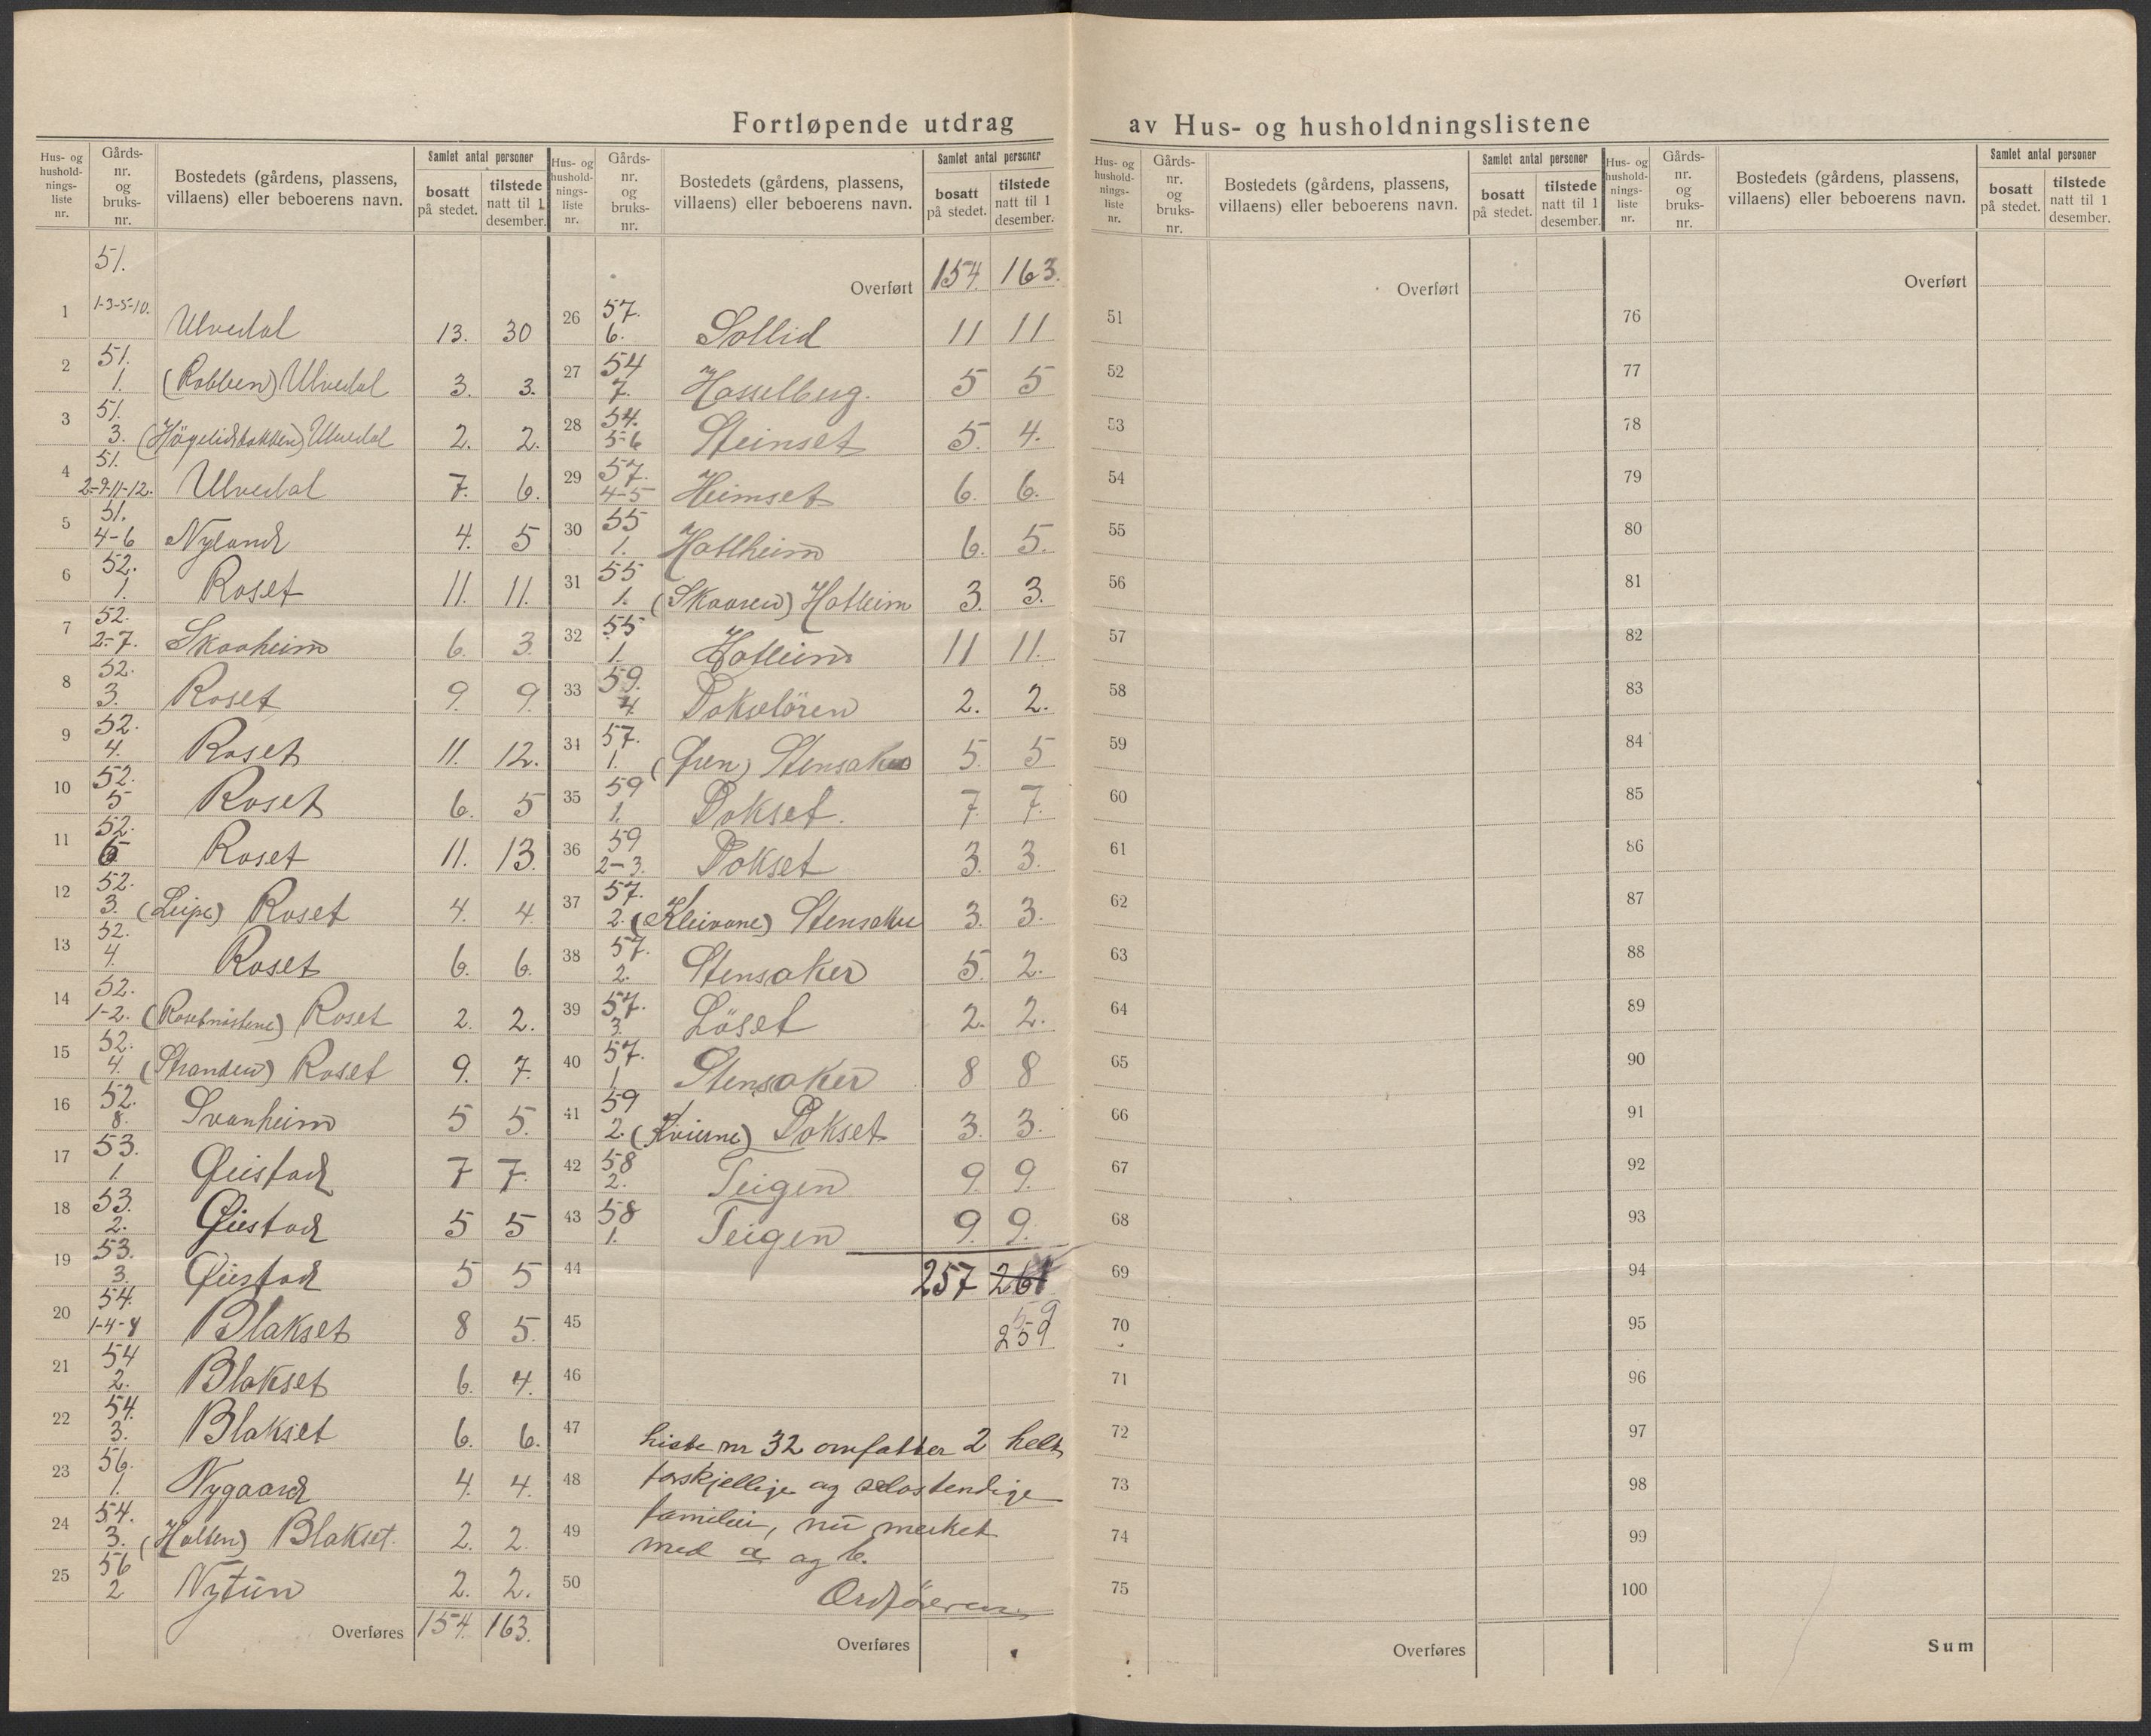 Fortløpende utdrag av Hus- og husholdningslistene
Hus- og husholdningsliste nr. Gårds-nr. og bruks-nr. Bostedets (gårdens, plassens, villaens) eller beboerens navn. Samlet antal personer bosatt på stedet. tilstede natt til 1 desember.
51.
1 1-3-5-10. Ulvedal 13. 30
2 51. 1. (Rabben) Ulvedal 3. 3.
3 51. 3. (Högelidbakken) Ulvedal 2. 2.
4 51. 2-9-11-12. Ulvedal 7. 6.
5 51. 4-6 Nyland 4. 5
6 52. 1. Roset 11. 11.
7 52. 2-7. Skaaheim 6. 3
8 52. 3. Roset 9. 9.
9 52. 4. Roset 11. 12.
10 52. 5 Roset 6. 5
11 52. 6 Roset 11. 13.
12 52. 3. (Leipe) Roset 4. 4.
13 52. 4. Roset 6. 6.
14 52. 1-2. (Rosetnöstene) Roset 2. 2.
15 52. 4. (Stranden) Roset 9. 7.
16 52. 8. Svanheim 5 5.
17 53. 1. Geistad 7 7.
18 53. 2. Geistad 5 5
19 53. 3. Geistad 5 5
20 54. 1-4-8 Blakset 8 5.
21 54 2. Blakset 6. 4.
22 54. 3. Blakset 6. 6.
23 56. 1. Nygaard 4. 4.
24 54. 3. (Holten) Blakset. 2. 2.
25 56 2 Nytun 2. 2.
Overføres 154. 163.
Hus- og husholdningsliste nr. Gårds-nr. og bruks-nr. Bostedets (gårdens, plassens, villaens) eller beboerens navn. Samlet antal personer bosatt på stedet. tilstede natt til 1 desember.
Overført 154. 163.
26 57. 6. Sollid 11 11
27 54 7. Hasselberg. 5 5
28 54. 5-6 Steinset 5. 4.
29 57. 4-5 Heimset 6. 6.
30 55 1. Hatlheim 6. 5.
31 55 1. (Skaaren) Hatleim 3. 3.
32 55 1. Hatleim 11 11.
33 59. 4. Dokselören 2. 2.
34 57. 1. (Gren) Stensaker 5. 5
35 59 1. Dokset. 7. 7.
36 59 2-3. Dokset 3. 3.
37 57. 2. (Kleivane) Stensaker 3. 3.
38 57. 2. Stensaker 5. 2.
39 57. 3. Löset 2. 2.
40 57. 1 Stensaker 8 8
41 59 2. (Kvierne) Dokset 3. 3.
42 58 2. Teigen 9. 9.
43 58 1. Teigen 9. 9.
44 257 261
59
45 259
46
47 Liste nr 32 omfatter 2 helt
48 forskjellige og selvstendige
49 familier, nu merket
med a og b.
50 Ordföreren
Overføres
Hus- og husholdningsliste nr. Gårds-nr. og bruks-nr. Bostedets (gårdens, plassens, villaens) eller beboerens navn. Samlet antal personer bosatt på stedet. tilstede natt til 1 desember.
Overført
51
52
53
54
55
56
57
58
59
60
61
62
63
64
65
66
67
68
69
70
71
72
73
74
75
Overføres
Hus- og husholdningsliste nr. Gårds-nr. og bruks-nr. Bostedets (gårdens, plassens, villaens) eller beboerens navn. Samlet antal personer bosatt på stedet. tilstede natt til 1 desember.
Overført
76
77
78
79
80
81
82
83
84
85
86
87
88
89
90
91
92
93
94
95
96
97
98
99
100
Sum